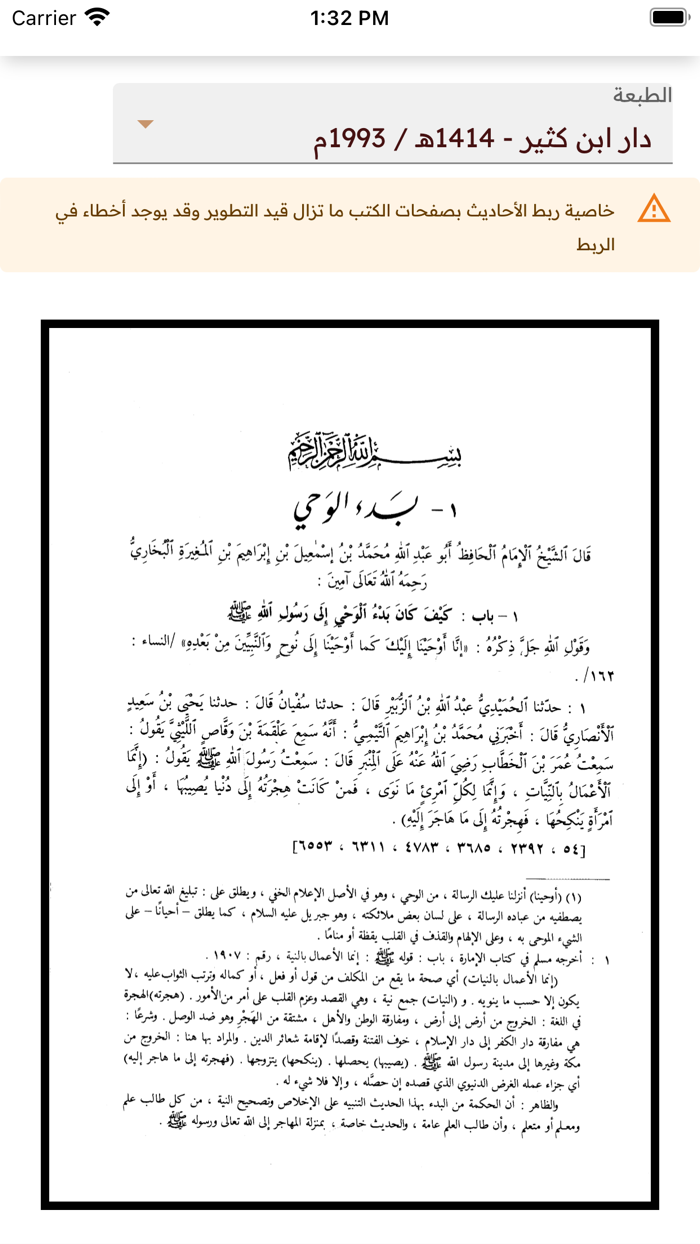 Carrier
1:32 PM
الطبعة
دار ابن كثير - 1414هـ / 1993م
خاصية ربط الأحاديث بصفحات الكتب ما تزال قيد التطوير وقد يوجد أخطاء في
الربط
بسم الله الرحمن الرحيم
١ - بَدء الوَحي
قَالَ ٱلشَّيْخُ ٱلْإِمَامُ ٱلْحَافِظُ أَبُو عَبْدِ ٱللهِ مُحَمَّدُ بْنُ إِسْمٰعِيلَ بْنِ إِبْرَاهِيمَ بْنِ ٱلمُغِيرَةِ ٱلْبُخَارِيُّ
رَحِمَهُ ٱللهُ تَعَالَى آمِينَ :
١ - باب : كَيْفَ كَانَ بَدْءُ ٱلْوَحْيِ إِلَى رَسُولِ ٱللهِ ﷺ
وَقَوْلِ ٱللهِ جَلَّ ذِكْرُهُ : «إِنَّا أَوْحَيْنَا إِلَيْكَ كَما أَوْحَيْنَا إِلَى نُوحٍ وَٱلنَّبِيِّينَ مِنْ بَعْدِهِ» /النساء :
١٦٣/ .
١ : حدّثنا ٱلحُمَيْدِيُّ عَبْدُ ٱللهِ بْنُ ٱلزُّبَيْرِ قَالَ : حدثنا سُفْيَانُ قَالَ : حدثنا يَحْيَى بْنُ سَعِيدٍ
ٱلْأَنْصَارِيُّ قَالَ : أَخْبَرَنِي مُحَمَّدُ بْنُ إِبْرَاهِيمَ ٱلتَّيْمِيُّ : أَنَّهُ سَمِعَ عَلْقَمَةَ بْنَ وَقَّاصٍ ٱللَّيْثِيَّ يَقُولُ :
سَمِعْتُ عُمَرَ بْنَ ٱلْخَطَّابِ رَضِيَ ٱللهُ عَنْهُ عَلَى ٱلْمِنْبَرِ قَالَ : سَمِعْتُ رَسُولَ ٱللهِ ﷺ يَقُولُ : (إِنَّمَا
ٱلْأَعْمَالُ بِٱلنِّيَّاتِ ، وَإِنَّمَا لِكُلِّ ٱمْرِئٍ مَا نَوَى ، فَمَنْ كَانَتْ هِجْرَتُهُ إِلَى دُنْيَا يُصِيبُهَا ، أَوْ إِلَى
ٱمْرَأَةٍ يَنْكِحُهَا ، فَهِجْرَتُهُ إِلَى مَا هَاجَرَ إِلَيْهِ) .
[٥٤ ، ٢٣٩٢ ، ٣٦٨٥ ، ٤٧٨٣ ، ٦٣١١ ، ٦٥٥٣]
(١) (أوحينا) أنزلنا عليك الرسالة ، من الوحي ، وهو في الأصل الإعلام الخفي ، ويطلق على : تبليغ الله تعالى من
يصطفيه من عباده الرسالة ، على لسان بعض ملائكته ، وهو جبريل عليه السلام ، كما يطلق – أحيانًا – على
الشيء الموحى به ، وعلى الإلهام والقذف في القلب يقظة أو منامًا .
١ : أخرجه مسلم في كتاب الإمارة ، باب : قوله ﷺ : إنما الأعمال بالنية ، رقم : ١٩٠٧ .
(إنما الأعمال بالنيات) أي صحة ما يقع من المكلف من قول أو فعل ، أو كماله وترتب الثواب عليه ، لا
يكون إلا حسب ما ينويه . و (النيات) جمع نية ، وهي القصد وعزم القلب على أمر من الأمور . (هجرته) الهجرة
في اللغة : الخروج من أرض إلى أرض ، ومفارقة الوطن والأهل ، مشتقة من الهَجْرِ وهو ضد الوصل . وشرعًا :
هي مفارقة دار الكفر إلى دار الإسلام ، خوف الفتنة وقصدًا لإقامة شعائر الدين . والمراد بها هنا : الخروج من
مكة وغيرها إلى مدينة رسول الله ﷺ . (يصيبها) يحصلها . (ينكحها) يتزوجها . (فهجرته إلى ما هاجر إليه)
أي جزاء عمله الغرض الدنيوي الذي قصده إن حصَّله ، وإلا فلا شيء له .
والظاهر : أن الحكمة من البدء بهذا الحديث التنبيه على الإخلاص وتصحيح النية ، من كل طالب علم
ومعلم أو متعلم ، وأن طالب العلم عامة ، والحديث خاصة ، بمنزلة المهاجر إلى الله تعالى ورسوله ﷺ .